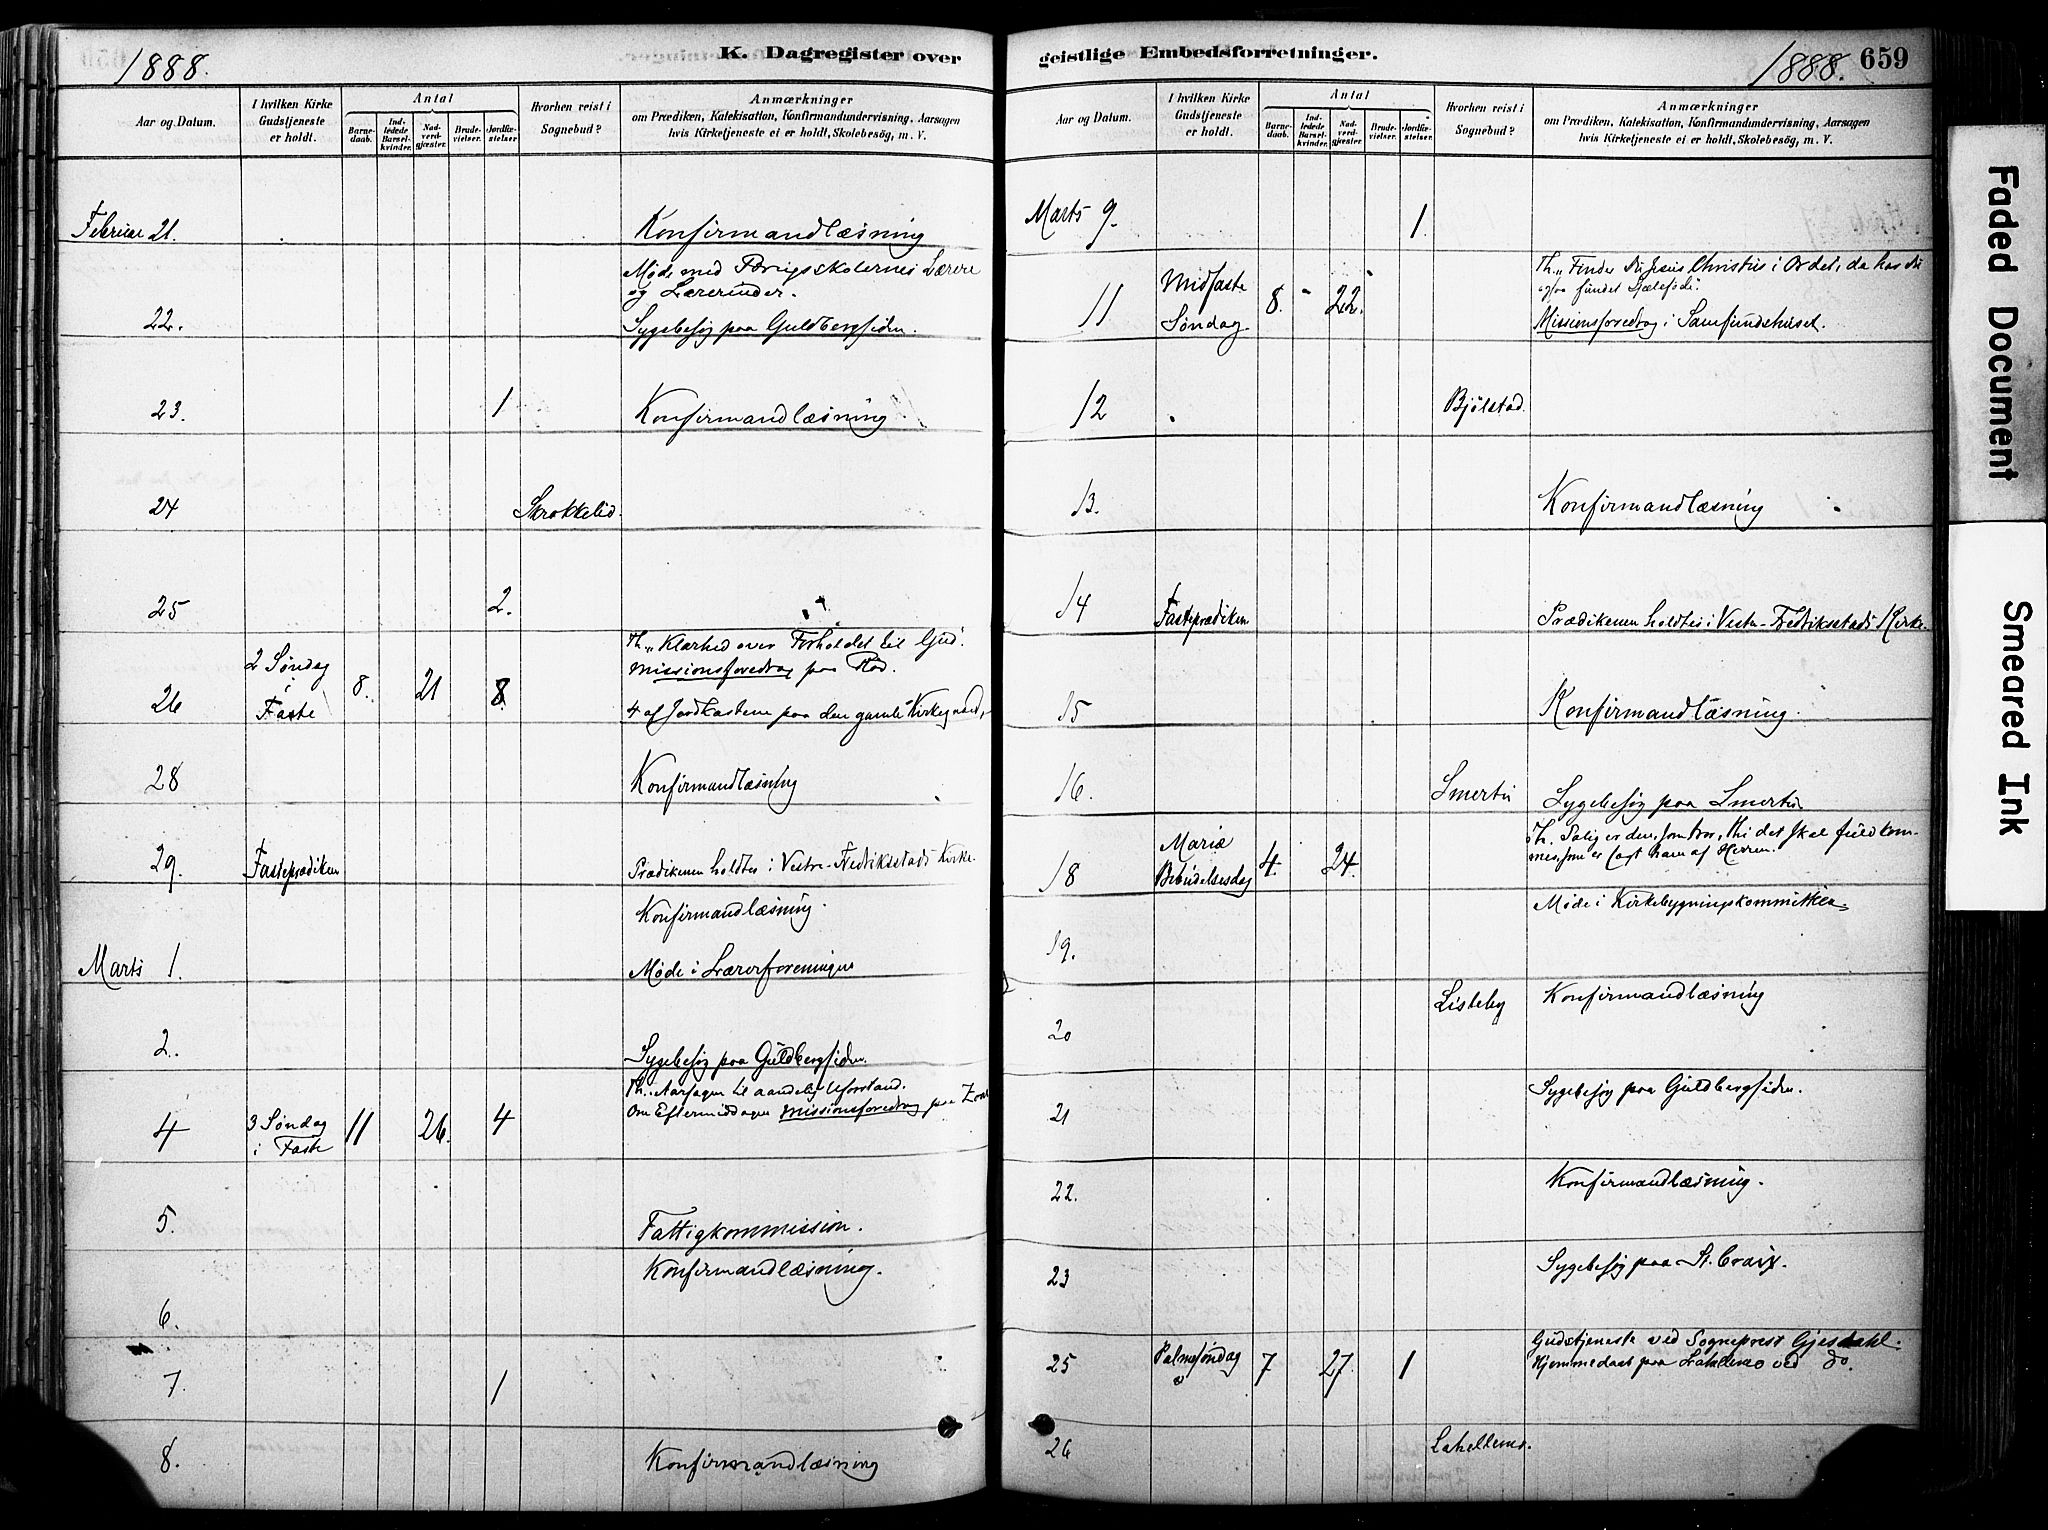 1888.
K. Dagregister over
Aar og Datum.
I hvilken Kirke Gudstjeneste er holdt.
Antal
Barnedaab.
Indledede Barselkvinder.
Nadverdgjæster.
Brudevielser.
Jordfæstelser.
Hvorhen reist i Sognebud?
Anmærkninger
om Prædiken, Katekisation, Konfirmandundervisning, Aarsagen
hvis Kirketjeneste ei er holdt, Skolebesög, m. V.
Februar 21. Konfirmandlæsning
Møde med Lærere
og Lærerinder.
22. Sygebesøg paa Guldbergsiden.
23. 1 Konfirmandlæsning.
24 Skrokkelid.
25 2.
Th. "Klarhed over Forholdet til Gud".
2 Søndag Missionsforedrag paa
i
26 Faste 8. 21 8. 4 af Jordkasterne paa den gamle Kirkegaard.
28 Konfirmandlæsning
29. Fasteprædiken Prædikenen holdtes i Vestre-Fredriksstads Kirke.
Konfirmandlæsning.
Marts 1. Møde i Lærerforeningen
2. Sygebesøg paa Guldbergsiden.
Th. Aarsagen til aandelig Uforstand.
Om Eftermiddagen Missionsforedrag paa
4 3 Søndag i Faste 11 26. 4
5. Fattigkommission.
Konfirmandlæsning.
6.
7. 1
8. Konfirmandlæsning
geistlige Embedsforretninger.
1888. 659
Aar og Datum.
I hvilken Kirke Gudstjeneste er holdt.
Antal
Barnedaab.
Indledede Barselkvinder.
Nadverdgjæster.
Brudevielser.
Jordfæstelser.
Hvorhen reist i Sognebud?
Anmærkninger
om Prædiken, Katekisation, Konfirmandundervisning, Aarsagen
hvis Kirketjeneste ei er holdt, Skolebesög, m. V.
Marts 9. 1.
Th. "Finder du Jesus Christus i Ordet, da har du
ogsaa fundet Sjæleføde".
11 Midfaste Søndag. 8. 22. Missionsforedrag i Samfundshuset.
12 Bjølstad.
13. Konfirmandlæsning
14 Fasteprædiken Prædikenen holdtes i Vestre-Fredriksstads Kirke.
15 Konfirmandlæsning.
16. Smertu Sygebesøg paa Smertu
Th. Salig er den, som tror, thi det skal fuldkom-
mes, som er sagt ham af Herren.
18 Mariæ Bebudelsesdag 4. 24.
Møde i Kirkebygningskommitteen.
19.
20 Lisleby Konfirmandlæsning
21 Sygebesøg paa Guldbergsiden.
22. Konfirmandlæsning.
23 Sygebesøg paa St. Croix.
Gudstjeneste ved Sogneprest Gjesdahl.
25 Palmesøndag 7 27. 1 Hjemmedaab paa Lahellemo ved do.
26 Lahellemo.
Faded Document
Smeared Ink